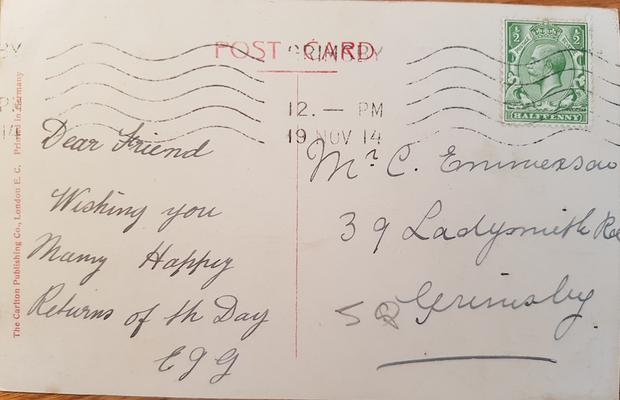 POST CARD
GRIMSBY
12. — PM
19 NOV 14
½ ½
HALFPENNY
The Carlton Publishing Co., London E. C. Printed in Germany
Dear Friend
Wishing you
Many Happy
Returns of th Day
E J G
Mr C. Emmerson
39 Ladysmith Rd
Grimsby